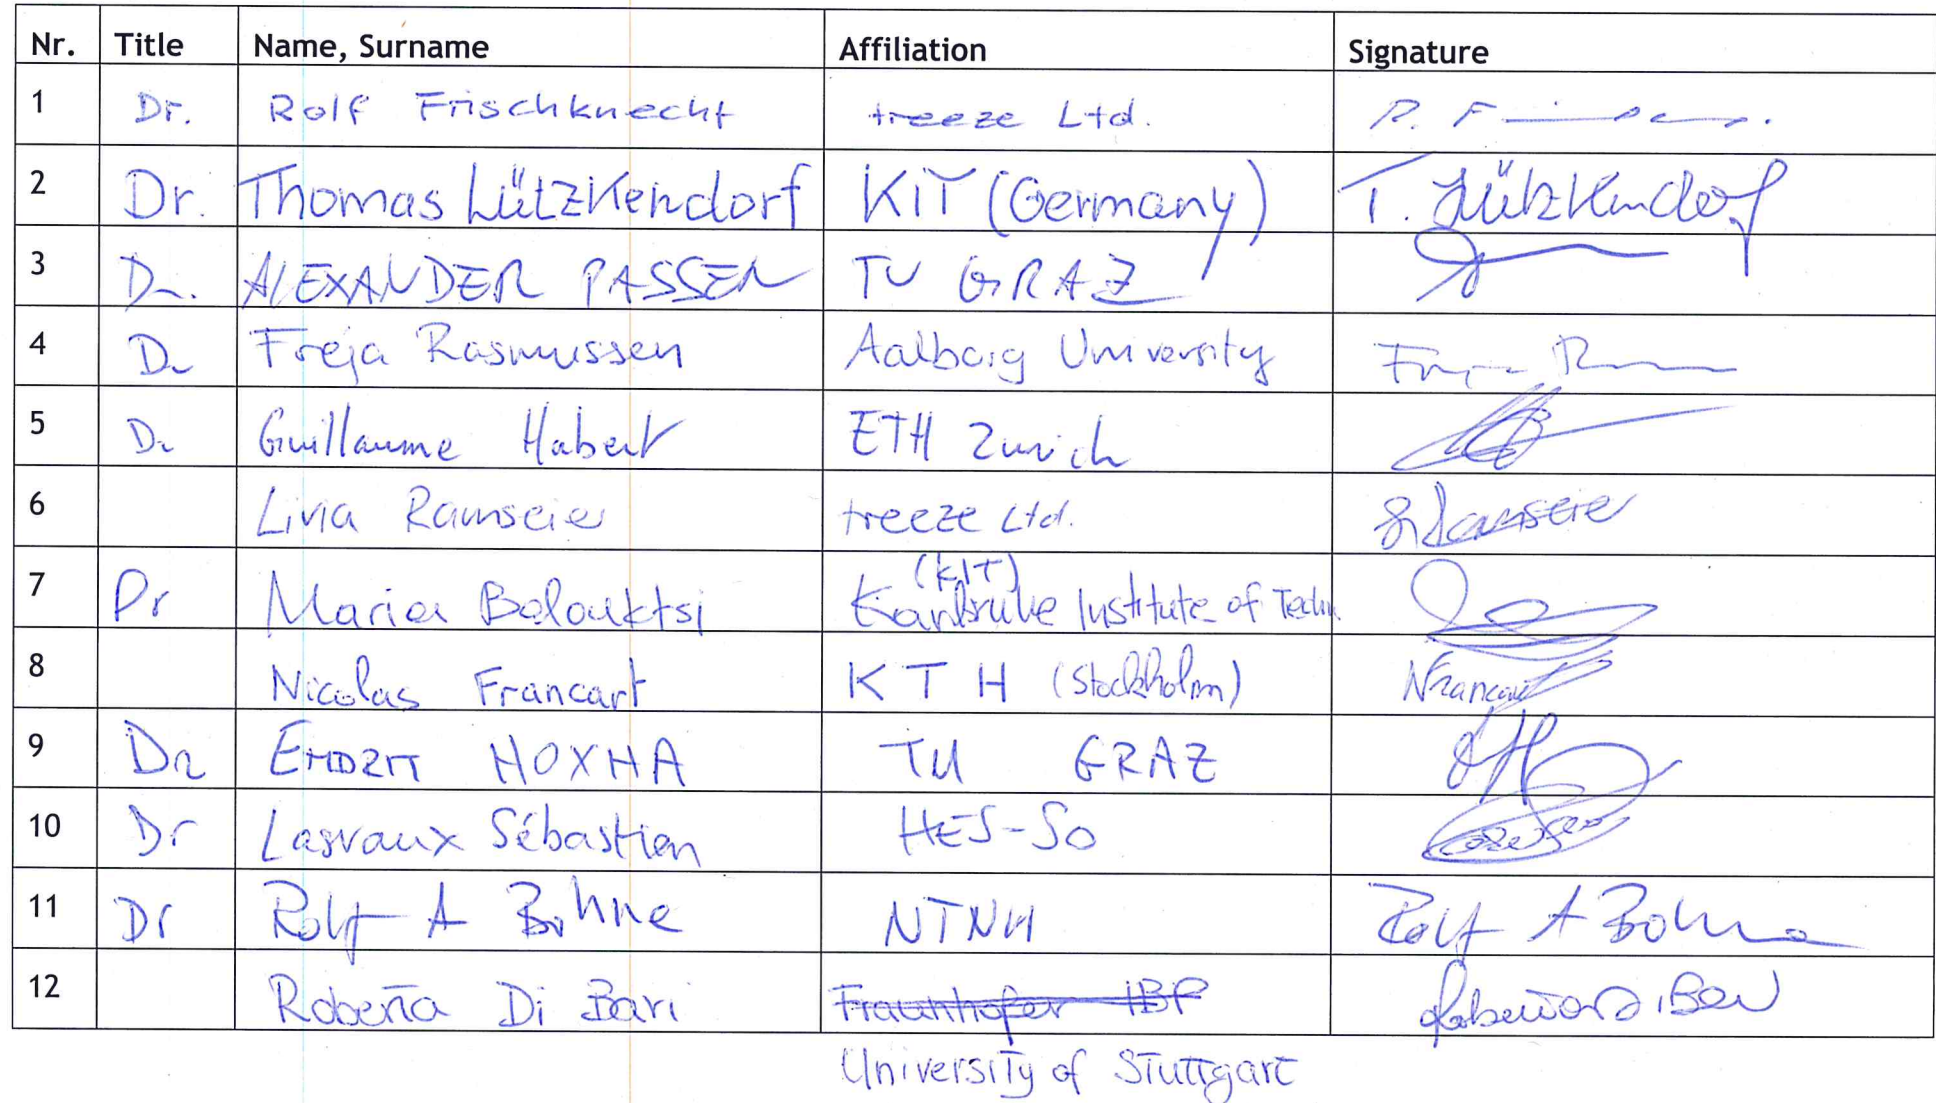 Nr. Title Name, Surname Affiliation Signature
1 Dr. Rolf Frischknecht treeze Ltd. R. F
2 Dr. Thomas Lützkendorf KIT (Germany) T. Lützkendorf
3 Dr. ALEXANDER PASSER TU GRAZ
4 Dr Freja Rasmussen Aalborg University
5 Dr Guillaume Habert ETH Zurich
6 Livia Ramseier treeze Ltd. L Ramseier
(KIT)
7 Dr Maria Balouktsi Karlsruhe Institute of Techn
8 Nicolas Francart KTH (Stockholm) NFrancart
9 Dr ENDRIT HOXHA TU GRAZ
10 Dr Lasvaux Sébastien HES-SO
11 Dr Rolf A Bohne NTNU Rolf A Bohne
12 Roberta Di Bari Fraunhofer IBP Roberta Di Bari
University of Stuttgart